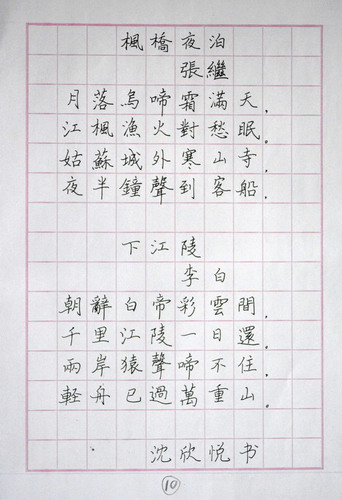 楓橋夜泊
張繼
月落烏啼霜滿天.
江楓漁火對愁眠.
姑蘇城外寒山寺,
夜半鐘聲到客船.
下江陵
李白
朝辭白帝彩雲間,
千里江陵一日還.
兩岸猿聲啼不住,
輕舟已過萬重山.
沈欣悦书
10